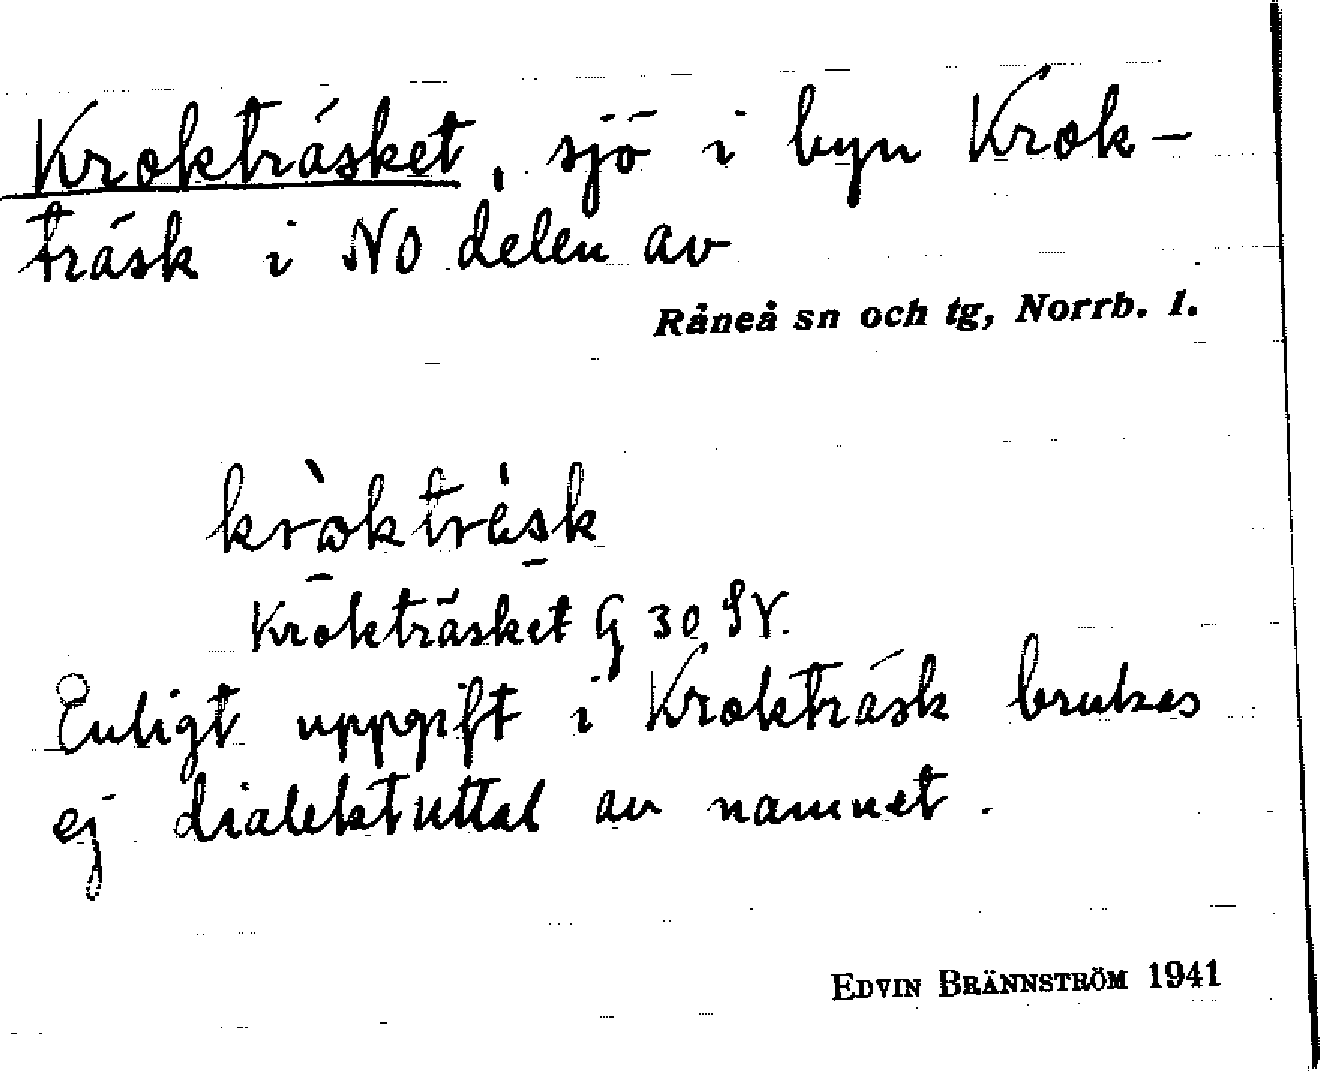 Krokträsket, sjö i byn Krok-
träsk i NO delen av
Råneå sn och tg, Norrb. l.
kròktrèsk
Krokträsket G 30 SV.
Enligt uppgift i Krokträsk brukas
ej dialektuttal av namnet.
EDVIN BRÄNNSTRÖM 1941